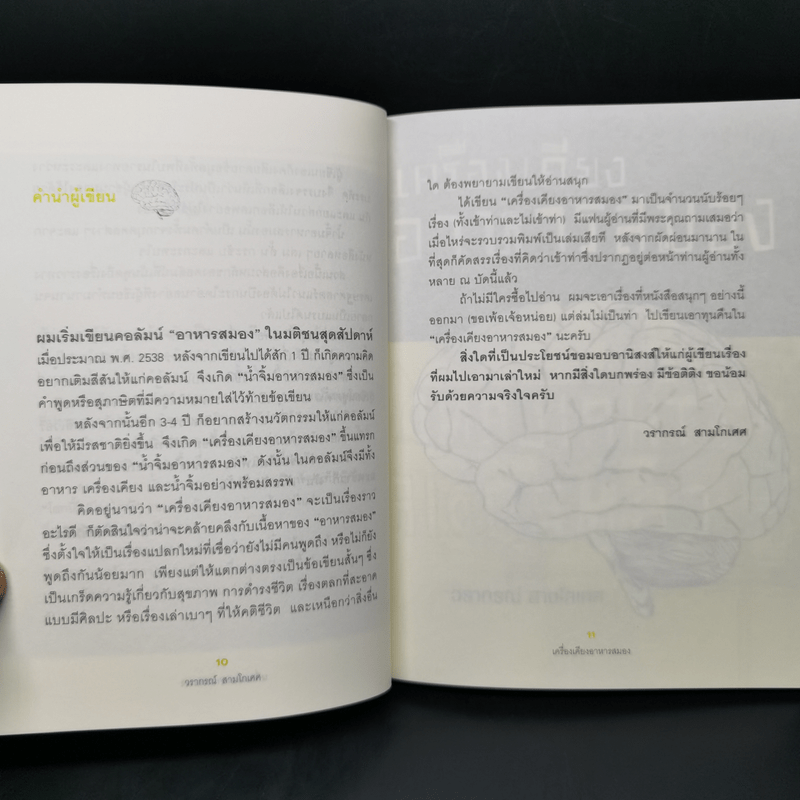 คำนำผู้เขียน
ผมเริ่มเขียนคอลัมน์ “อาหารสมอง” ในมติชนสุดสัปดาห์
เมื่อประมาณ พ.ศ. 2538 หลังจากเขียนไปได้สัก 1 ปี ก็เกิดความคิด
อยากเติมสีสันให้แก่คอลัมน์ จึงเกิด “น้ำจิ้มอาหารสมอง” ซึ่งเป็น
คำพูดหรือสุภาษิตที่มีความหมายใส่ไว้ท้ายข้อเขียน
หลังจากนั้นอีก 3-4 ปี ก็อยากสร้างนวัตกรรมให้แก่คอลัมน์
เพื่อให้มีรสชาติยิ่งขึ้น จึงเกิด “เครื่องเคียงอาหารสมอง” ขึ้นแทรก
ก่อนถึงส่วนของ “น้ำจิ้มอาหารสมอง” ดังนั้น ในคอลัมน์จึงมีทั้ง
อาหาร เครื่องเคียง และน้ำจิ้มอย่างพร้อมสรรพ
คิดอยู่นานว่า “เครื่องเคียงอาหารสมอง” จะเป็นเรื่องราว
อะไรดี ก็ตัดสินใจว่าน่าจะคล้ายคลึงกับเนื้อหาของ “อาหารสมอง”
ซึ่งตั้งใจให้เป็นเรื่องแปลกใหม่ที่เชื่อว่ายังไม่มีคนพูดถึง หรือไม่ก็ยัง
พูดถึงกันน้อยมาก เพียงแต่ให้แตกต่างตรงเป็นข้อเขียนสั้นๆ ซึ่ง
เป็นเกร็ดความรู้เกี่ยวกับสุขภาพ การดำรงชีวิต เรื่องตลกที่สะอาด
แบบมีศิลปะ หรือเรื่องเล่าเบาๆ ที่ให้คติชีวิต และเหนือกว่าสิ่งอื่น
10
วรากรณ์ สามโกเศศ
ใด ต้องพยายามเขียนให้อ่านสนุก
ได้เขียน “เครื่องเคียงอาหารสมอง” มาเป็นจำนวนนับร้อยๆ
เรื่อง (ทั้งเข้าท่าและไม่เข้าท่า) มีแฟนผู้อ่านที่มีพระคุณถามเสมอว่า
เมื่อไหร่จะรวบรวมพิมพ์เป็นเล่มเสียที หลังจากผัดผ่อนมานาน ใน
ที่สุดก็คัดสรรเรื่องที่คิดว่าเข้าท่าซึ่งปรากฏอยู่ต่อหน้าท่านผู้อ่านทั้ง
หลาย ณ บัดนี้แล้ว
ถ้าไม่มีใครซื้อไปอ่าน ผมจะเอาเรื่องที่หนังสือสนุกๆ อย่างนี้
ออกมา (ขอเพ้อเจ้อหน่อย) แต่ล่มไม่เป็นท่า ไปเขียนเอาทุนคืนใน
“เครื่องเคียงอาหารสมอง” นะครับ
สิ่งใดที่เป็นประโยชน์ขอมอบอานิสงส์ให้แก่ผู้เขียนเรื่อง
ที่ผมไปเอามาเล่าใหม่ หากมีสิ่งใดบกพร่อง มีข้อติติง ขอน้อม
รับด้วยความจริงใจครับ
วรากรณ์ สามโกเศศ
11
เครื่องเคียงอาหารสมอง